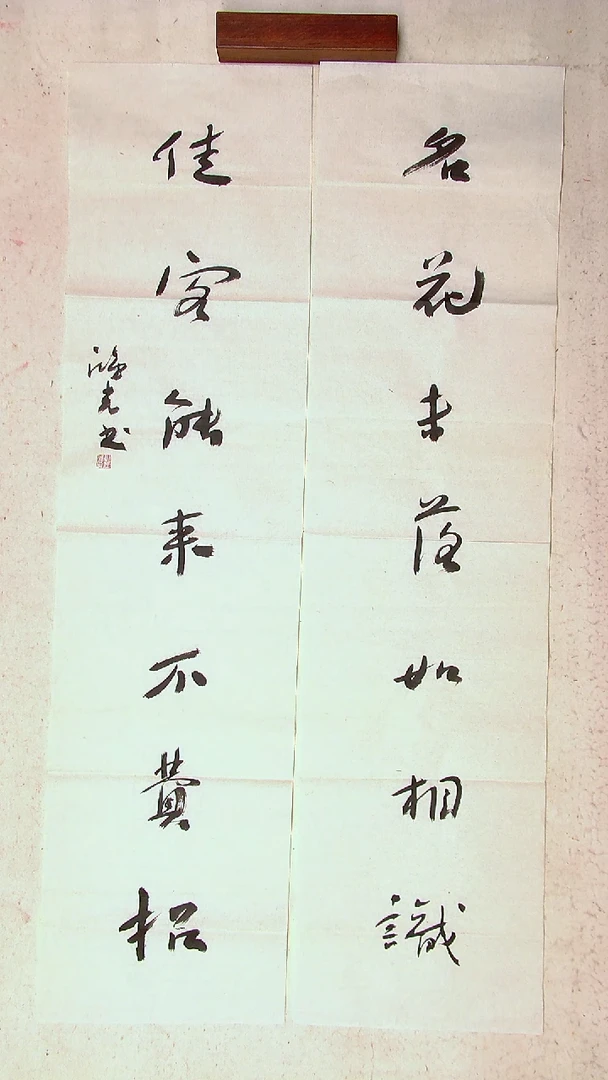 名花未落如相識
佳客能來不費招
鴻光书